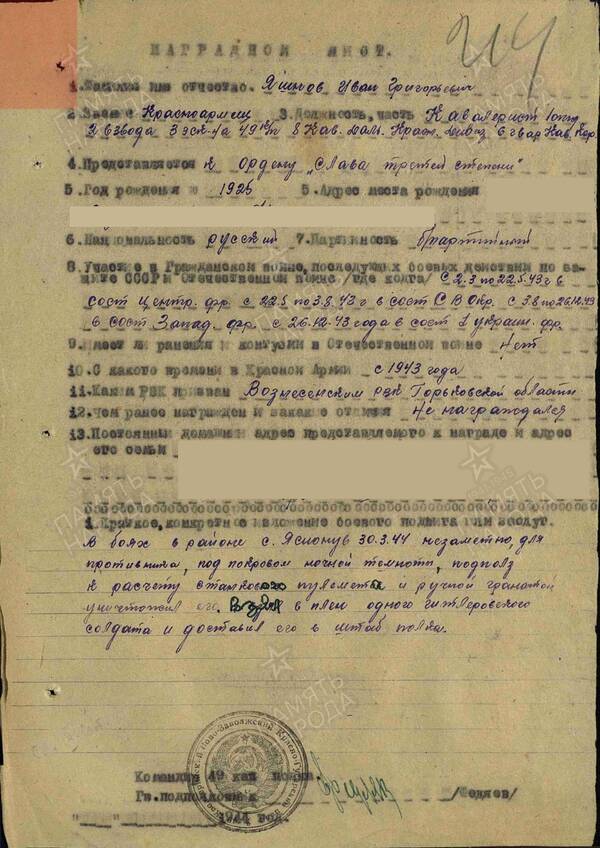 214
НАГРАДНОЙ ЛИСТ.
1. Фамилия имя отчество. Яшнов Иван Григорьевич
2. Звание Красноармеец 3. Должность, часть Кавалерист
2 взвода 3 эск-на 49 кп 8 Кав. Даль. Красн. дивиз 6 гвар Кав. Кор.
4. Представляется к Ордену "Слава третей степени"
5. Год рождения 1925 5. Адрес места рождения
6. Национальность русский 7. Партийность б/партийный
8. Участие в Гражданской войне, последующих боевых действий по за-
щите СССР и Отечественной войне /где когда/ С 2.3 по 22.5.43 г в
сост Центр. фр. с 22.5 по 3.8.43 г в сост С В Окр. с 3.8 по 26.12.43
в сост Запад. фр. с 26.12.43 года в сост 1 украин. фр.
9. Имеет ли ранения и контузии в Отечественной войне Нет
10. С какого времени в Красной Армии с 1943 года
11. Каким РВК призван Вознесенским рвк Горьковской области
12. Чем ранее награжден и за какие отличия Не награждался
13. Постоянный домашний адрес представляемого к награде и адрес
его семьи
1. Краткое, конкретное изложение боевого подвига или заслуг.
В боях в районе с. Ясионув 30.3.44 незаметно, для
противника, под покровом ночной темноты, подполз
к расчету станкового пулемета и ручной гранатой
уничтожил его. Взял в плен одного гитлеровского
солдата и доставил его в штаб полка.
Командир 49 кав полка
Гв. подполковник /Федяев/
1944 год.
ПАМЯТЬ НАРОДА